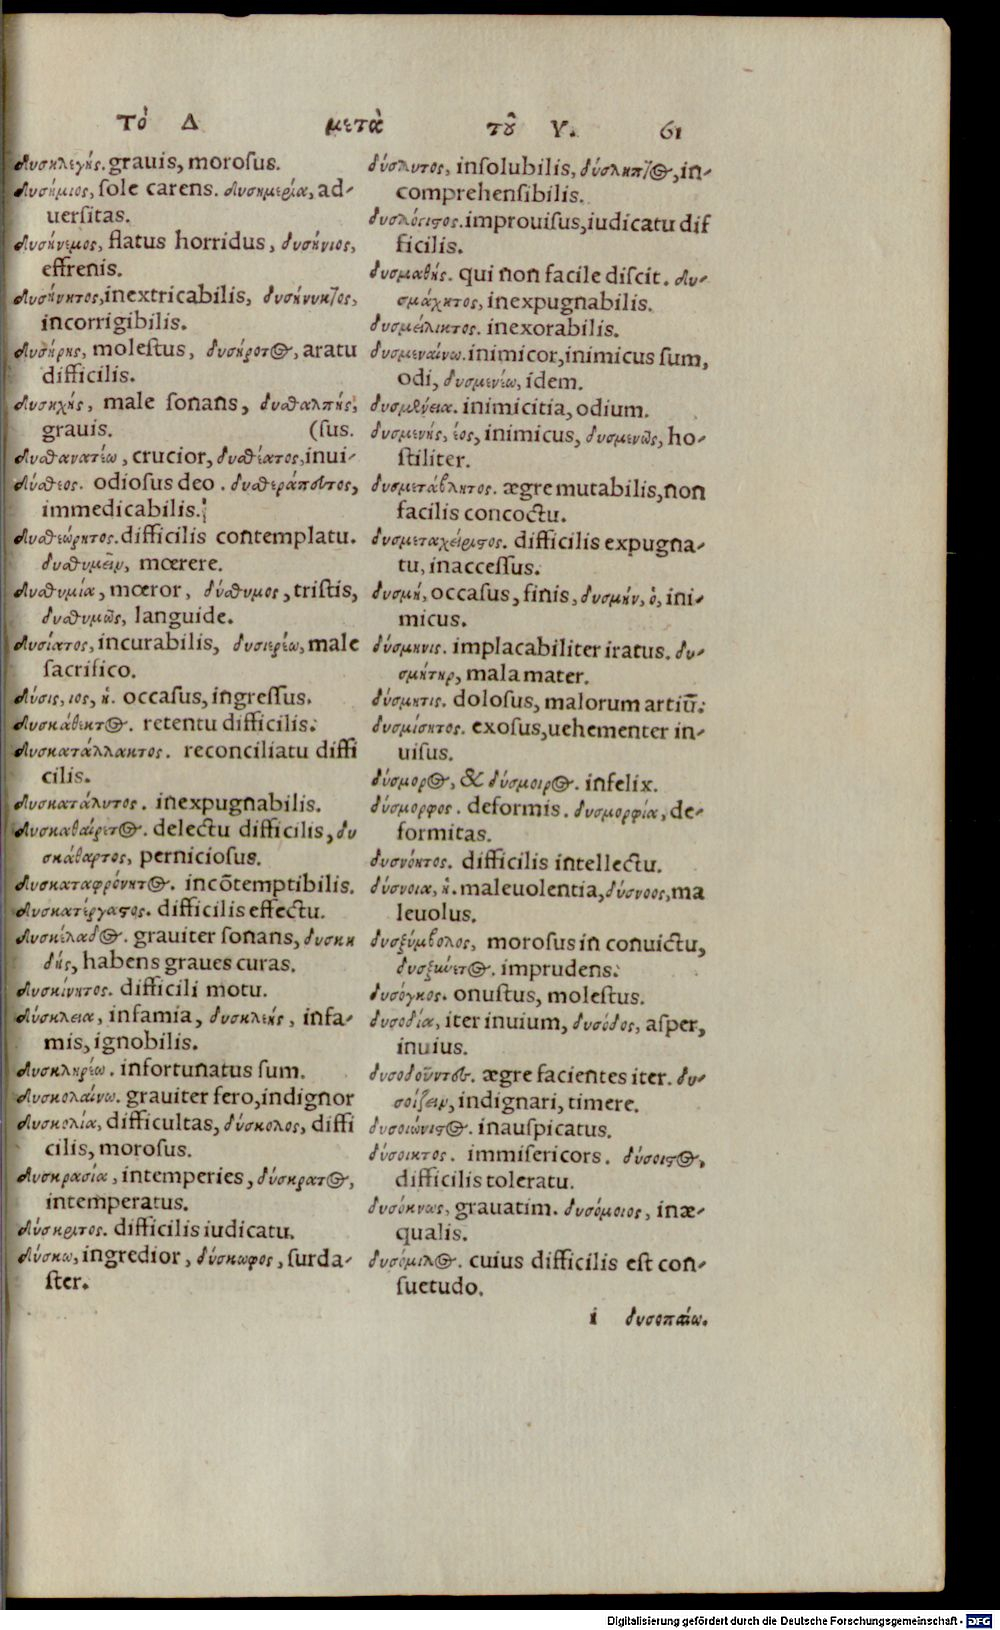 Τὸ Δ μετὰ τοῦ Υ. 61
δυσηλεγής. grauis, morosus.
δυσήμιος, sole carens. δυσημερία, ad-
uersitas.
δυσήνεμος, flatus horridus, δυσήνιος,
effrenis.
δυσήνητος, inextricabilis, δυσήνυκτος,
incorrigibilis.
δυσήρης, molestus, δυσήροτος, aratu
difficilis.
δυσηχής, male sonans, δυσθαλπής,
grauis. (sus.
δυσθανατέω, crucior, δυσθέατος, inui-
δύσθεος. odiosus deo. δυσθεράπευτος,
immedicabilis.
δυσθεώρητος. difficilis contemplatu.
δυσθυμεῖν, mœrere.
δυσθυμία, mœror, δύσθυμος, tristis,
δυσθυμῶς, languide.
δυσίατος, incurabilis, δυσιερέω, male
sacrifico.
δύσις, ιος, ἡ. occasus, ingressus.
δυσκάθεκτος. retentu difficilis.
δυσκατάλλακτος. reconciliatu diffi
cilis.
δυσκατάλυτος. inexpugnabilis.
δυσκαθαίρετος. delectu difficilis, δυ
σκάθαρτος, perniciosus.
δυσκαταφρόνητος. incõtemptibilis.
δυσκατέργαστος. difficilis effectu.
δυσκέλαδος. grauiter sonans, δυσκη
δής, habens graues curas.
δυσκίνητος. difficili motu.
δύσκλεια, infamia, δυσκλεής, infa-
mis, ignobilis.
δυσκληρέω. infortunatus sum.
δυσκολαίνω. grauiter fero, indignor
δυσκολία, difficultas, δύσκολος, diffi
cilis, morosus.
δυσκρασία, intemperies, δύσκρατος,
intemperatus.
δύσκριτος. difficilis iudicatu.
δύσκω, ingredior, δύσκωφος, surda-
ster.
δύσλυτος, insolubilis, δύσληπτος, in-
comprehensibilis.
δυσλόγιστος. improuisus, iudicatu dif
ficilis.
δυσμαθής. qui non facile discit. δυ-
σμάχητος, inexpugnabilis.
δυσμείλικτος. inexorabilis.
δυσμεναίνω. inimicor, inimicus sum,
odi, δυσμενέω, idem.
δυσμένεια. inimicitia, odium.
δυσμενής, έος, inimicus, δυσμενῶς, ho-
stiliter.
δυσμετάβλητος. ægre mutabilis, non
facilis concoctu.
δυσμεταχείριστος. difficilis expugna-
tu, inaccessus.
δυσμή, occasus, finis, δυσμήν, ὁ, ini-
micus.
δύσμηνις. implacabiliter iratus. δυ-
σμήτηρ, mala mater.
δύσμητις. dolosus, malorum artiũ.
δυσμίσητος. exosus, uehementer in-
uisus.
δύσμορος, & δύσμοιρος. infelix.
δύσμορφος. deformis. δυσμορφία, de-
formitas.
δυσνόητος. difficilis intellectu.
δύσνοια, ἡ. maleuolentia, δύσνοος, ma
leuolus.
δυσξύμβολος, morosus in conuictu,
δυσξύνετος. imprudens.
δυσόγκος. onustus, molestus.
δυσοδία, iter inuium, δυσόδος, asper,
inuius.
δυσοδοῦντες. ægre facientes iter. δυ-
σοίζειν, indignari, timere.
δυσοιώνιστος. inauspicatus.
δύσοικτος. immisericors. δύσοιστος,
difficilis toleratu.
δυσόκνως, grauatim. δυσόμοιος, inæ-
qualis.
δυσόμιλος. cuius difficilis est con-
suetudo.
i δυσοπαίω.
Digitalisierung gefördert durch die Deutsche Forschungsgemeinschaft - DFG